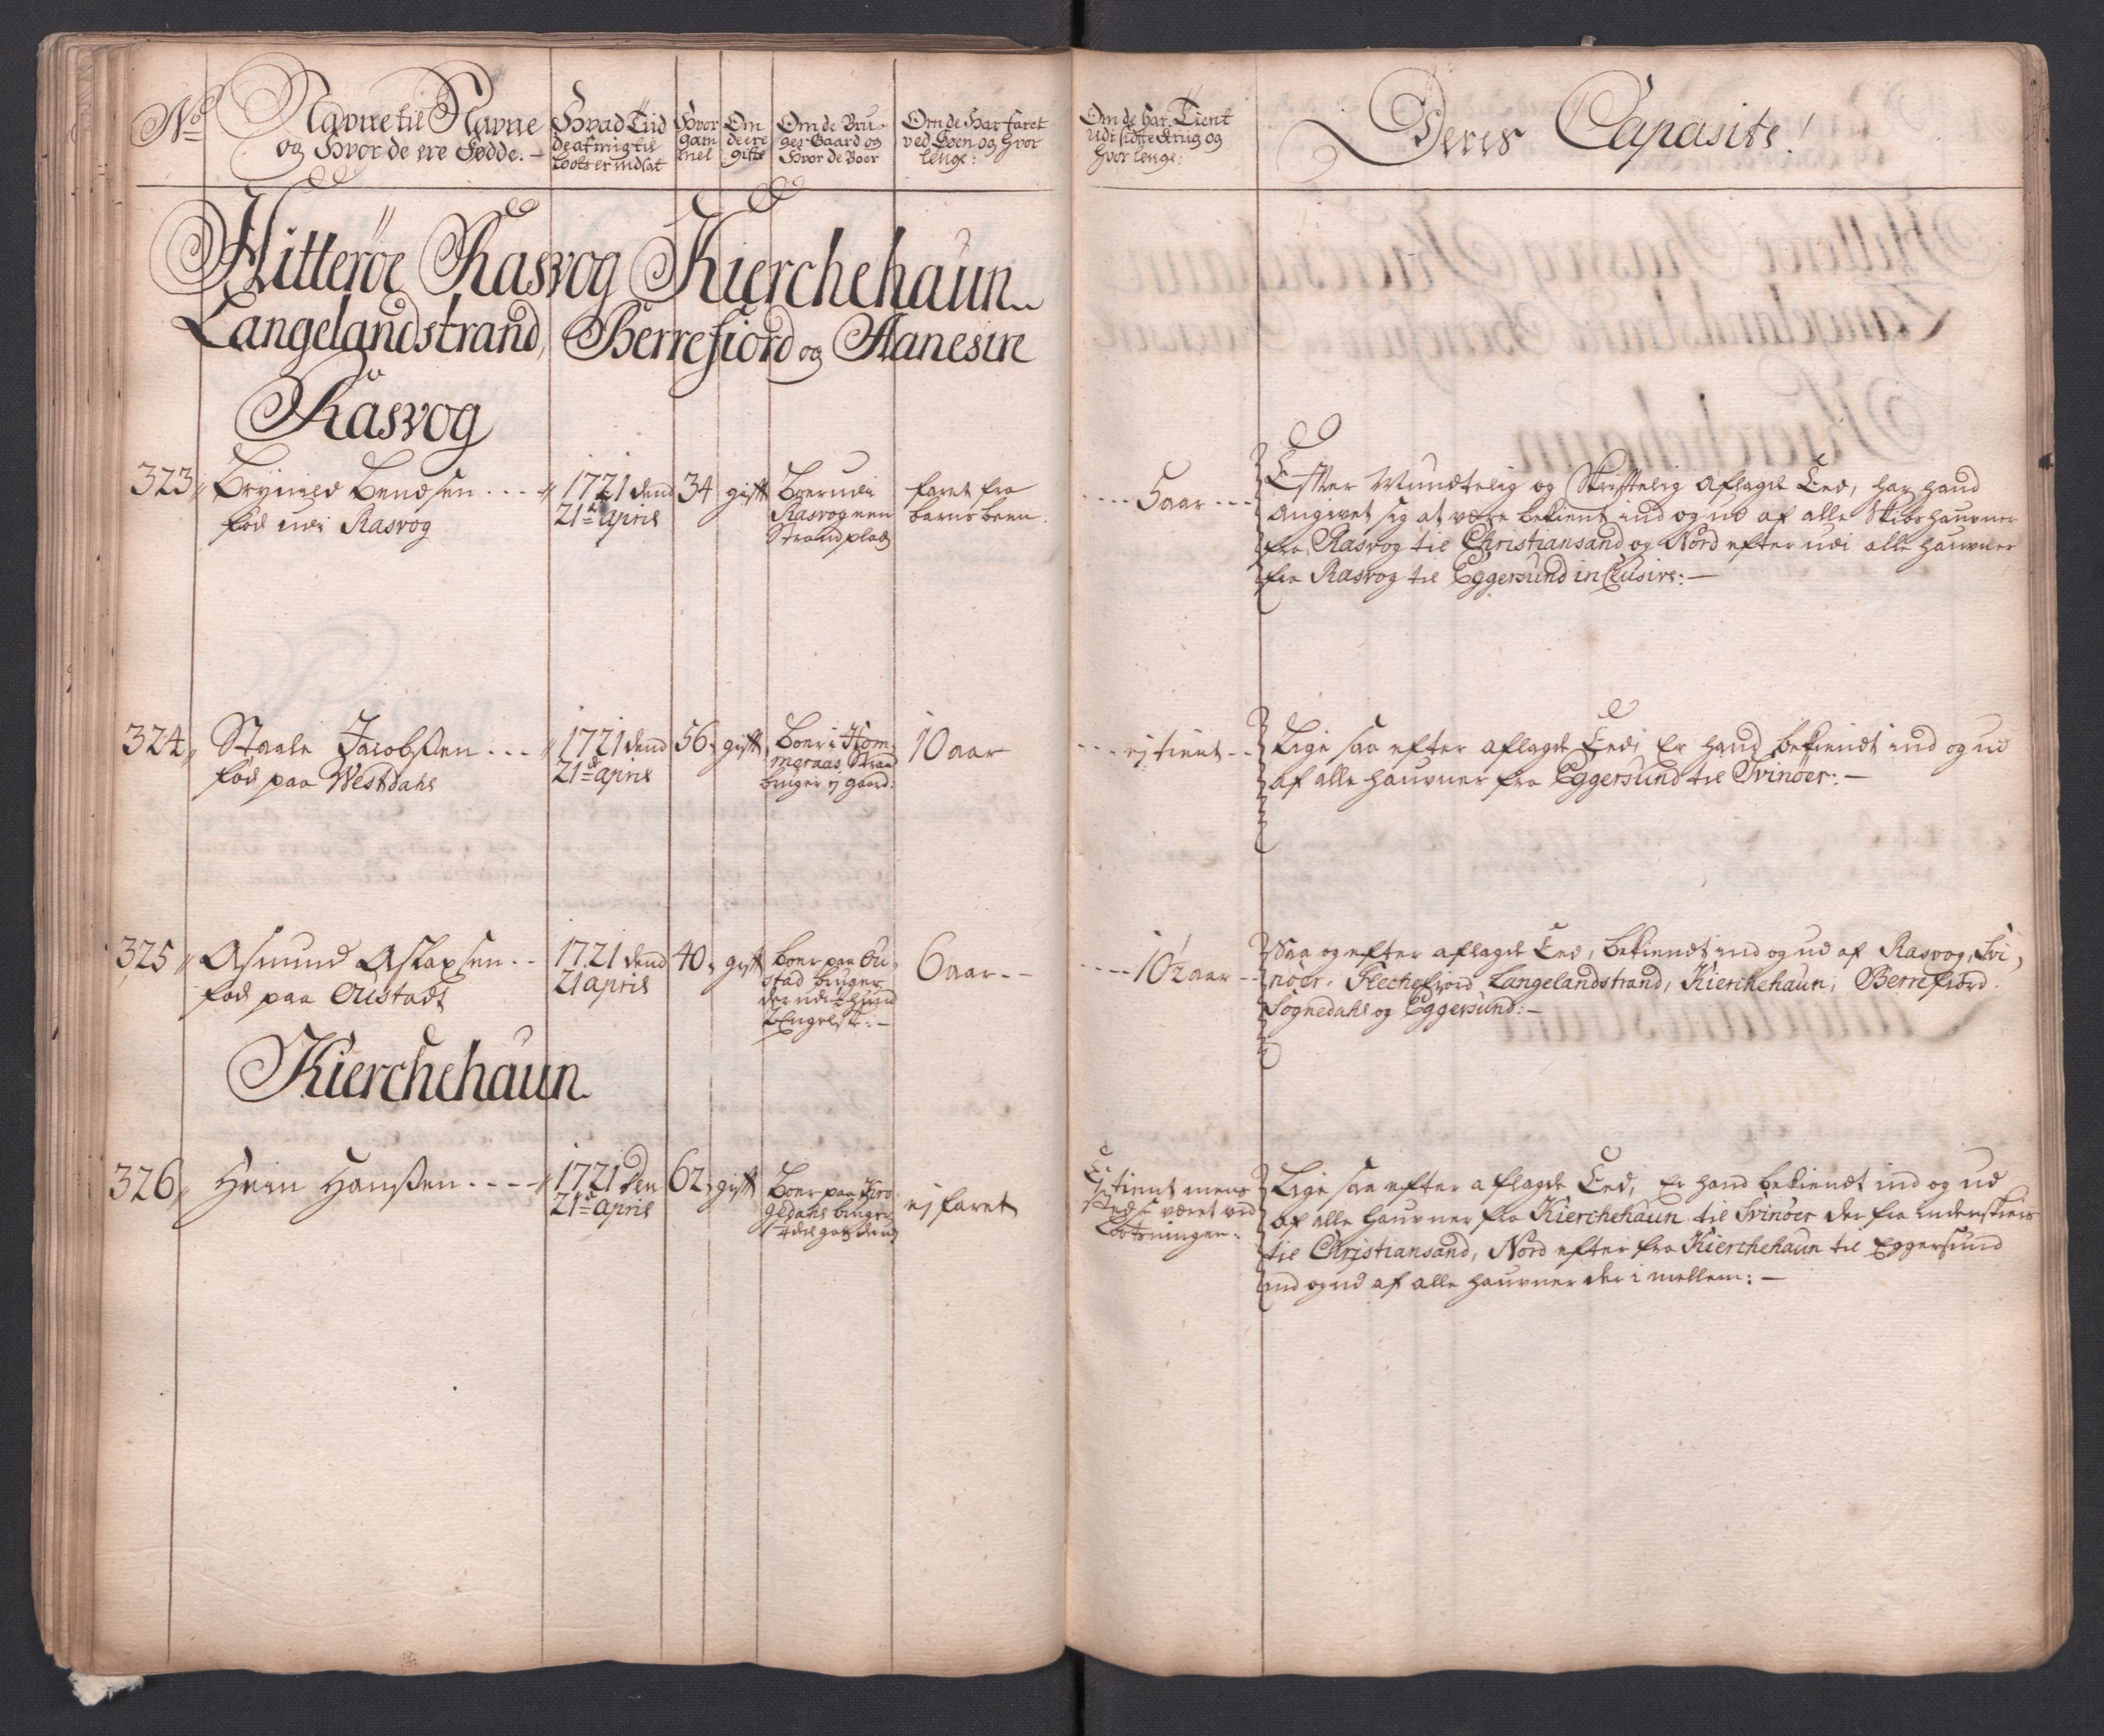 No
Navne til Navne
og Hvor de ere Fødde. -
Hvad Tiid
de af mig til
Lods er indsat
Hvor
gam
mel
Om
de ere
gifte
Om de Bru-
ger Gaard og
Hvor de Boer
Om de Har faret
ved Söen og hvor
lenge:
Om de har Tient
udi sidste Krug og
hvor lenge:
Deres Capasite!
Hitteröe Rasvog Kierchehaun
Langelandstrand, Berrefiord og Aanesire
Rasvog
323 Brynild Bendsen
fød udi Rasvog
1721 dend
21de april
34
gift
Boer udi
Rasvog een
Strandplads
faret fra
barns been.
5 aar
Effter Mundtelig og Skrifftelig Aflagde Eed, har hand
angivet sig at være bekient ind og ud af alle Skibshaufner
fra Rasvog til Christiansand og Nord efter udi alle haufner
fra Rasvog til Eggersund inclusive: -
324 Staale Jacobsen
fød paa Westdahl
1721 dend
21de april
56
gift
Boer i Hom-
mgraas Strand
bruger ej gaard:
10 aar
ej tient
Lige saa efter aflagde Eed, Er hand bekiendt ind og ud
af alle haufner fra Eggersund til Svinöer: -
325 Asmund Aslaxsen
fød paa Oustadt
1721 dend
21 april
40
gift
boer paa Ou-
stad bruger
der udi
6 aar
10½ aar
Saa og efter aflagde Eed, bekiendt ind og ud af Rasvog, Svi-
nöer, Flechefiord Langelandstrand, Kierchehaun, Berrefiord.
Sognedahl og Eggersund: -
Kierchehaun
326 Hein Hanssen
1721 den
21de april
62
gift
Boer paa Kiro
gedahl bruger
ej faret
Ej tient mens
altid været ved
Lootsningen:
Lige saa efter aflagde Eed, Er hand bekiendt ind og ud
af alle haufner fra Kierchehaun til Svinöer der fra indenskiers
til Christiansand, Nord efter fra Kierchehaun til Eggersund
ind og ud af alle haufner der i mellem: -